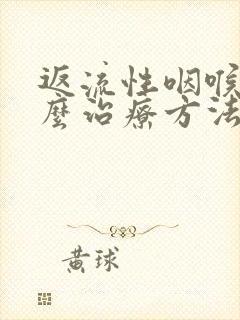 返流性咽喉
麼治療方法
黃球